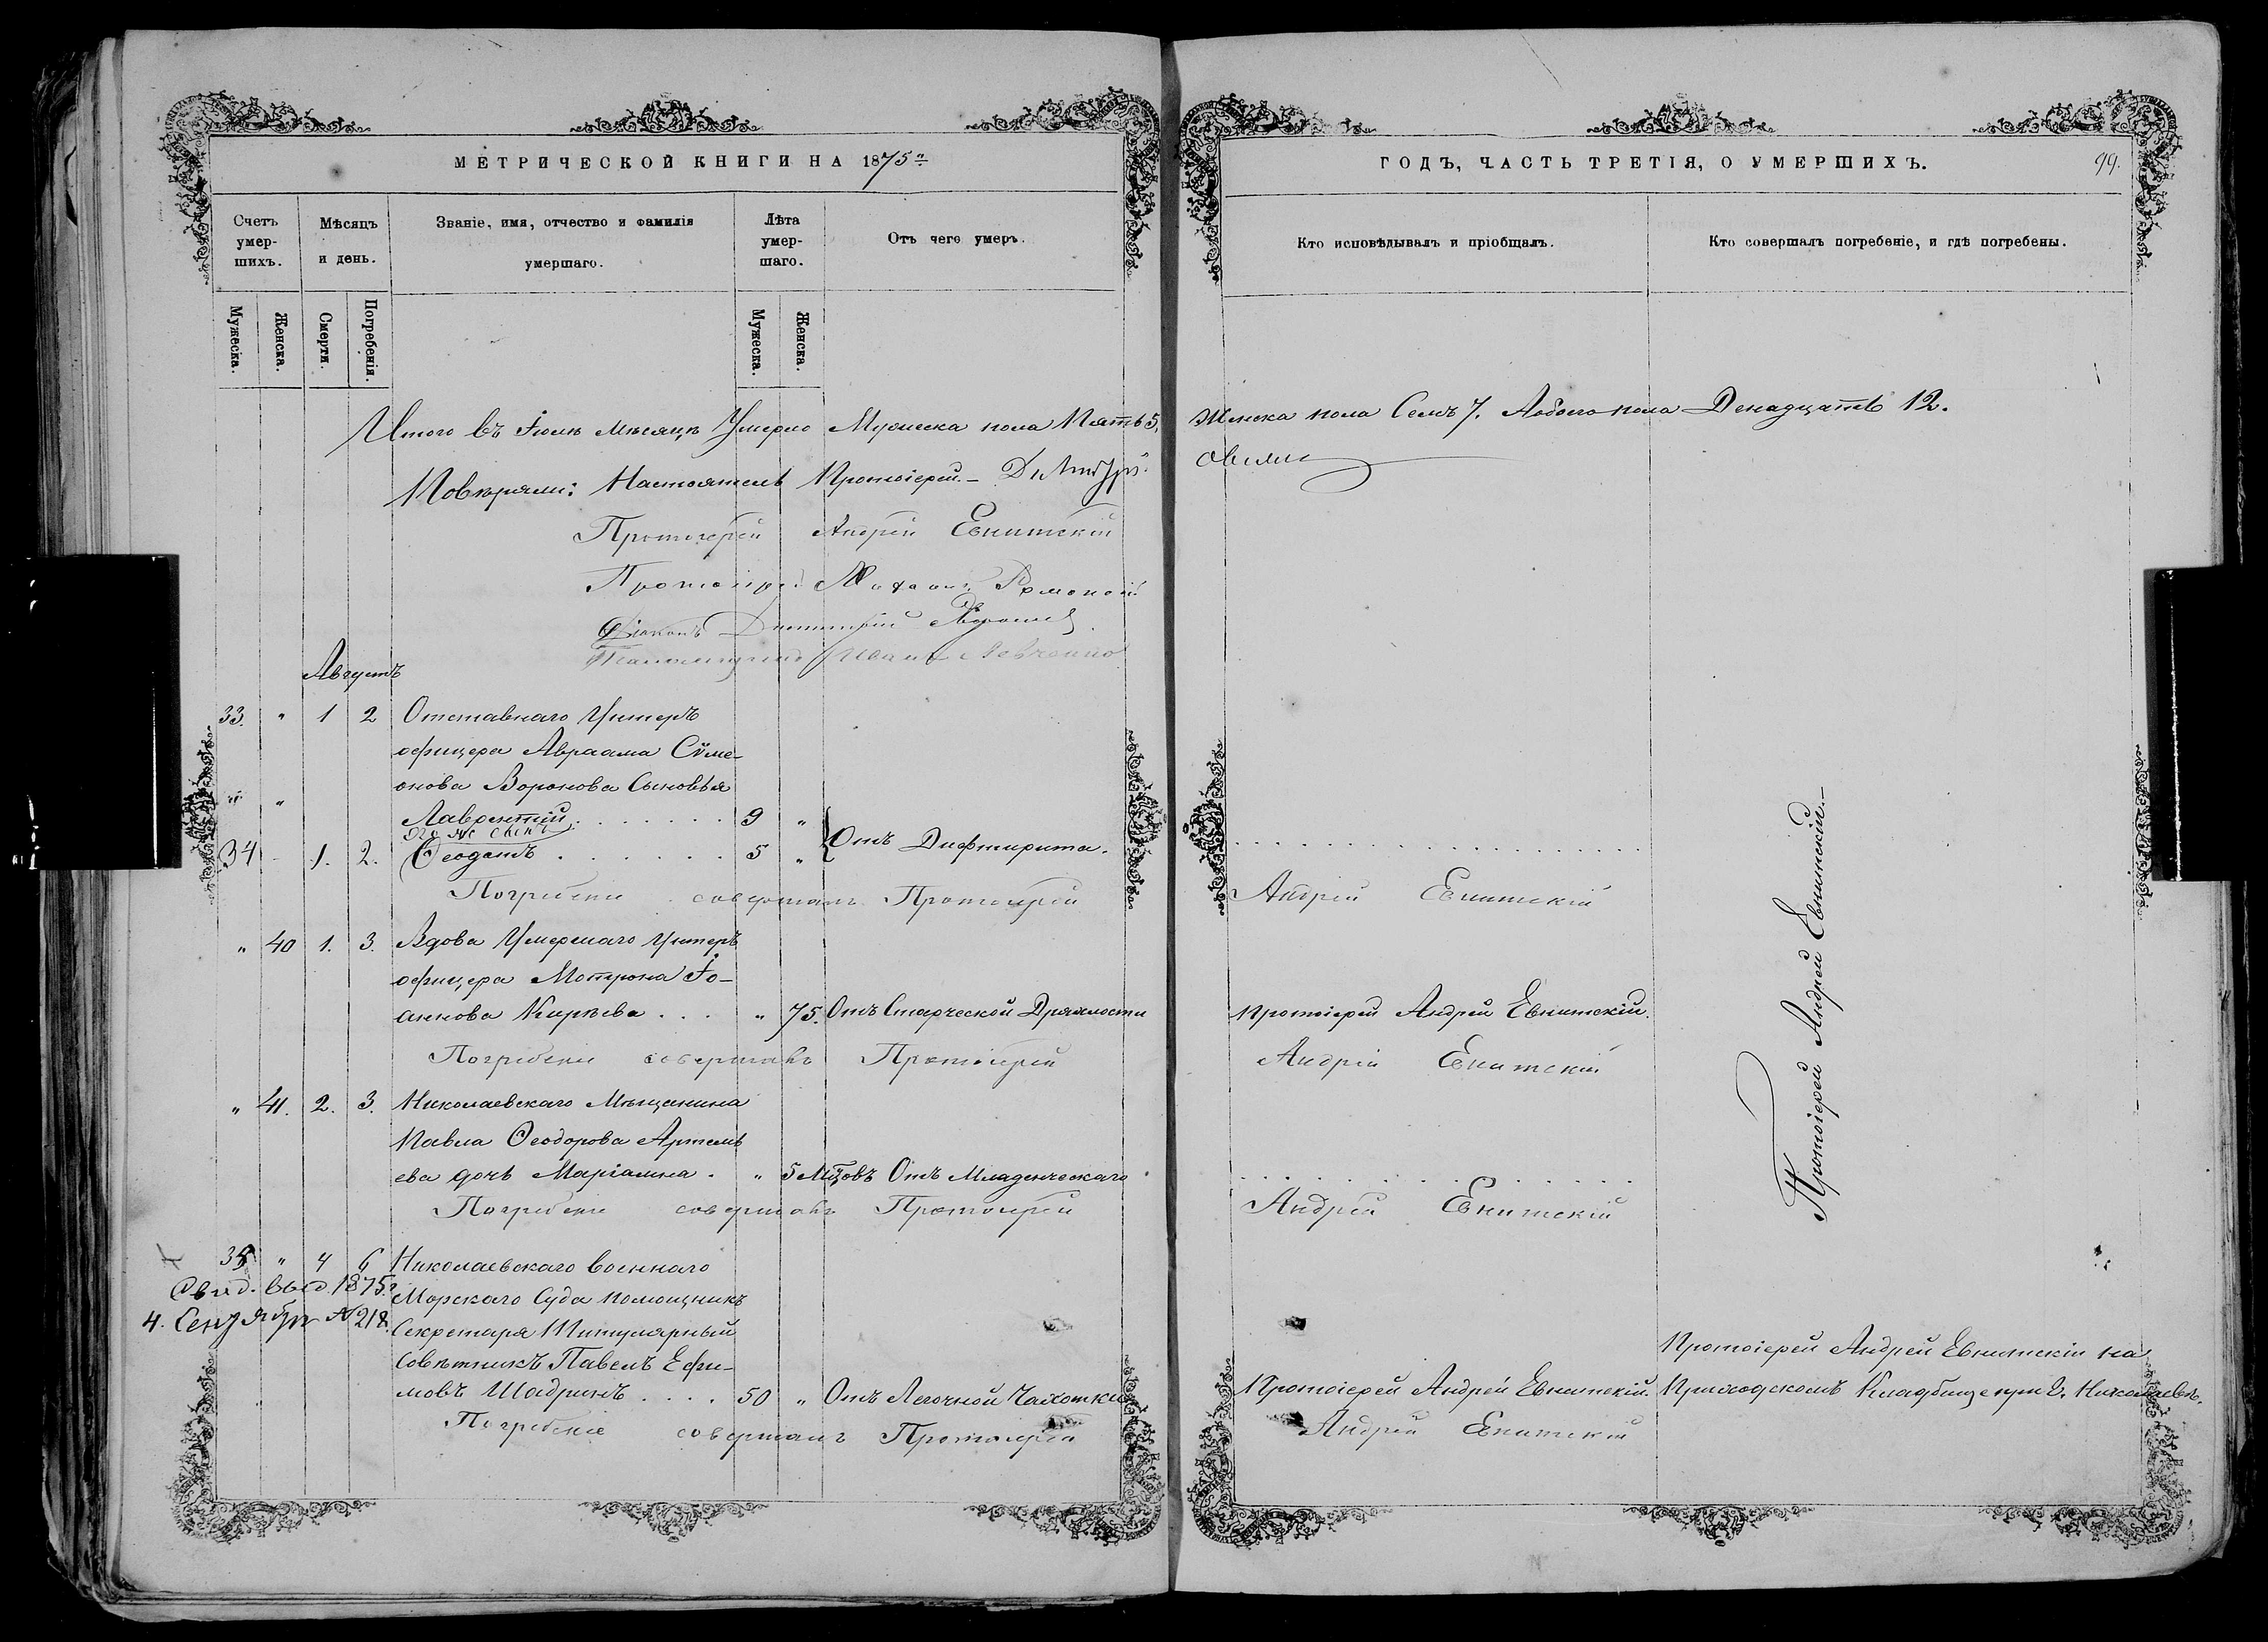 МЕТРИЧЕСКОЙ КНИГИ НА 1875й
ГОДЪ, ЧАСТЬ ТРЕТІЯ, О УМЕРШИХЪ.
99.
Счетъ умер-шихъ.
Мѣсяцъ и день.
Званіе, имя, отчество и фамилія умершаго.
Лѣта умер-шаго.
Отъ чего умеръ.
Кто исповѣдывалъ и пріобщалъ.
Кто совершалъ погребеніе, и гдѣ погребены.
Мужеска.
Женска.
Смерти.
Погребенія.
Мужеска.
Женска.
Итого въ Іюлѣ мѣсяцѣ Умерло Мужеска пола Пять 5. Женска пола Семъ 7. Аобоего пола Двенадцать 12.
Повѣряли: Настоятель Протоіерей
Протоіерей Андрей Евнитскій
Протоіерей
Діаконъ Димитрій
Іванъ
Августъ
33. " 1 2 Отставнаго Унтеръ
офицера Авраама Сѵме-
онова Воронова Сыновья
Лаврентій . . . . . . . 9 "
Его же сынъ
34 - 1. 2. Ѳеодотъ . . . . . . 5 " Отъ Дифтирита.
Погребеніе совершалъ Протоіерей Андрей Евнитскій
" 40 1. 3. Вдова Умершаго Унтеръ
офицера Мотрона Іо-
аннова Кирѣева . . . " 75. Отъ Старческой Дряхлости Протоіерей Андрей Евнитскій.
Погребеніе совершалъ Протоіерей Андрей Евнитскій
" 41. 2. 3. Николаевскаго Мѣщанина
Павла Ѳеодорова Артемь
ева дочь Маріамна . " 5 Мцовъ Отъ Младенческаго
Погребеніе совершалъ Протоіерей Андрей Евнитскій
Протоіерей Андрей Евнитскій.
35 " 4 6 Николаевскаго военнаго
Свид. выд. 1875.
Морскаго Суда помощникъ
4. Сентября № 218.
Секретаря Титулярный
Совѣтникъ Павелъ Ефи-
мовъ Шадринъ . . . . 50 " Отъ Легочной Чахотки Протоіерей Андрей Евнитскій.
Протоіерей Андрей Евнитскій на
Приходскомъ Кладбище при г. Николаевѣ.
Погребеніе совершалъ Протоіерей Андрей Евнитскій